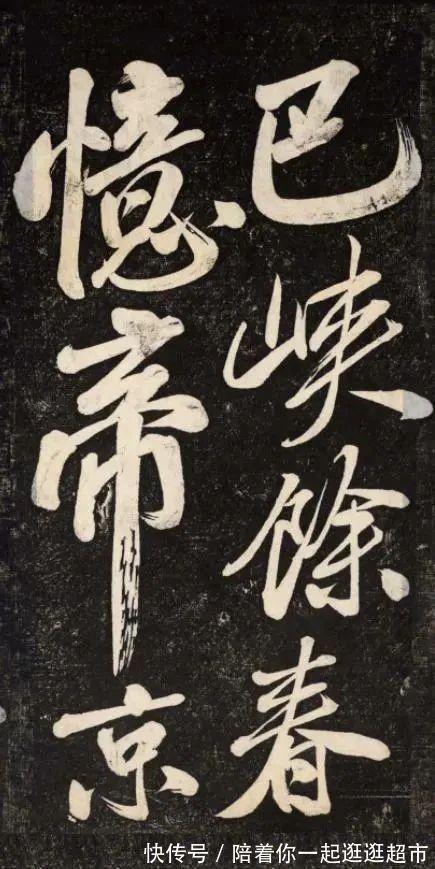 巴峡餘春
憶帝京
快传号 / 陪着你一起逛逛超市